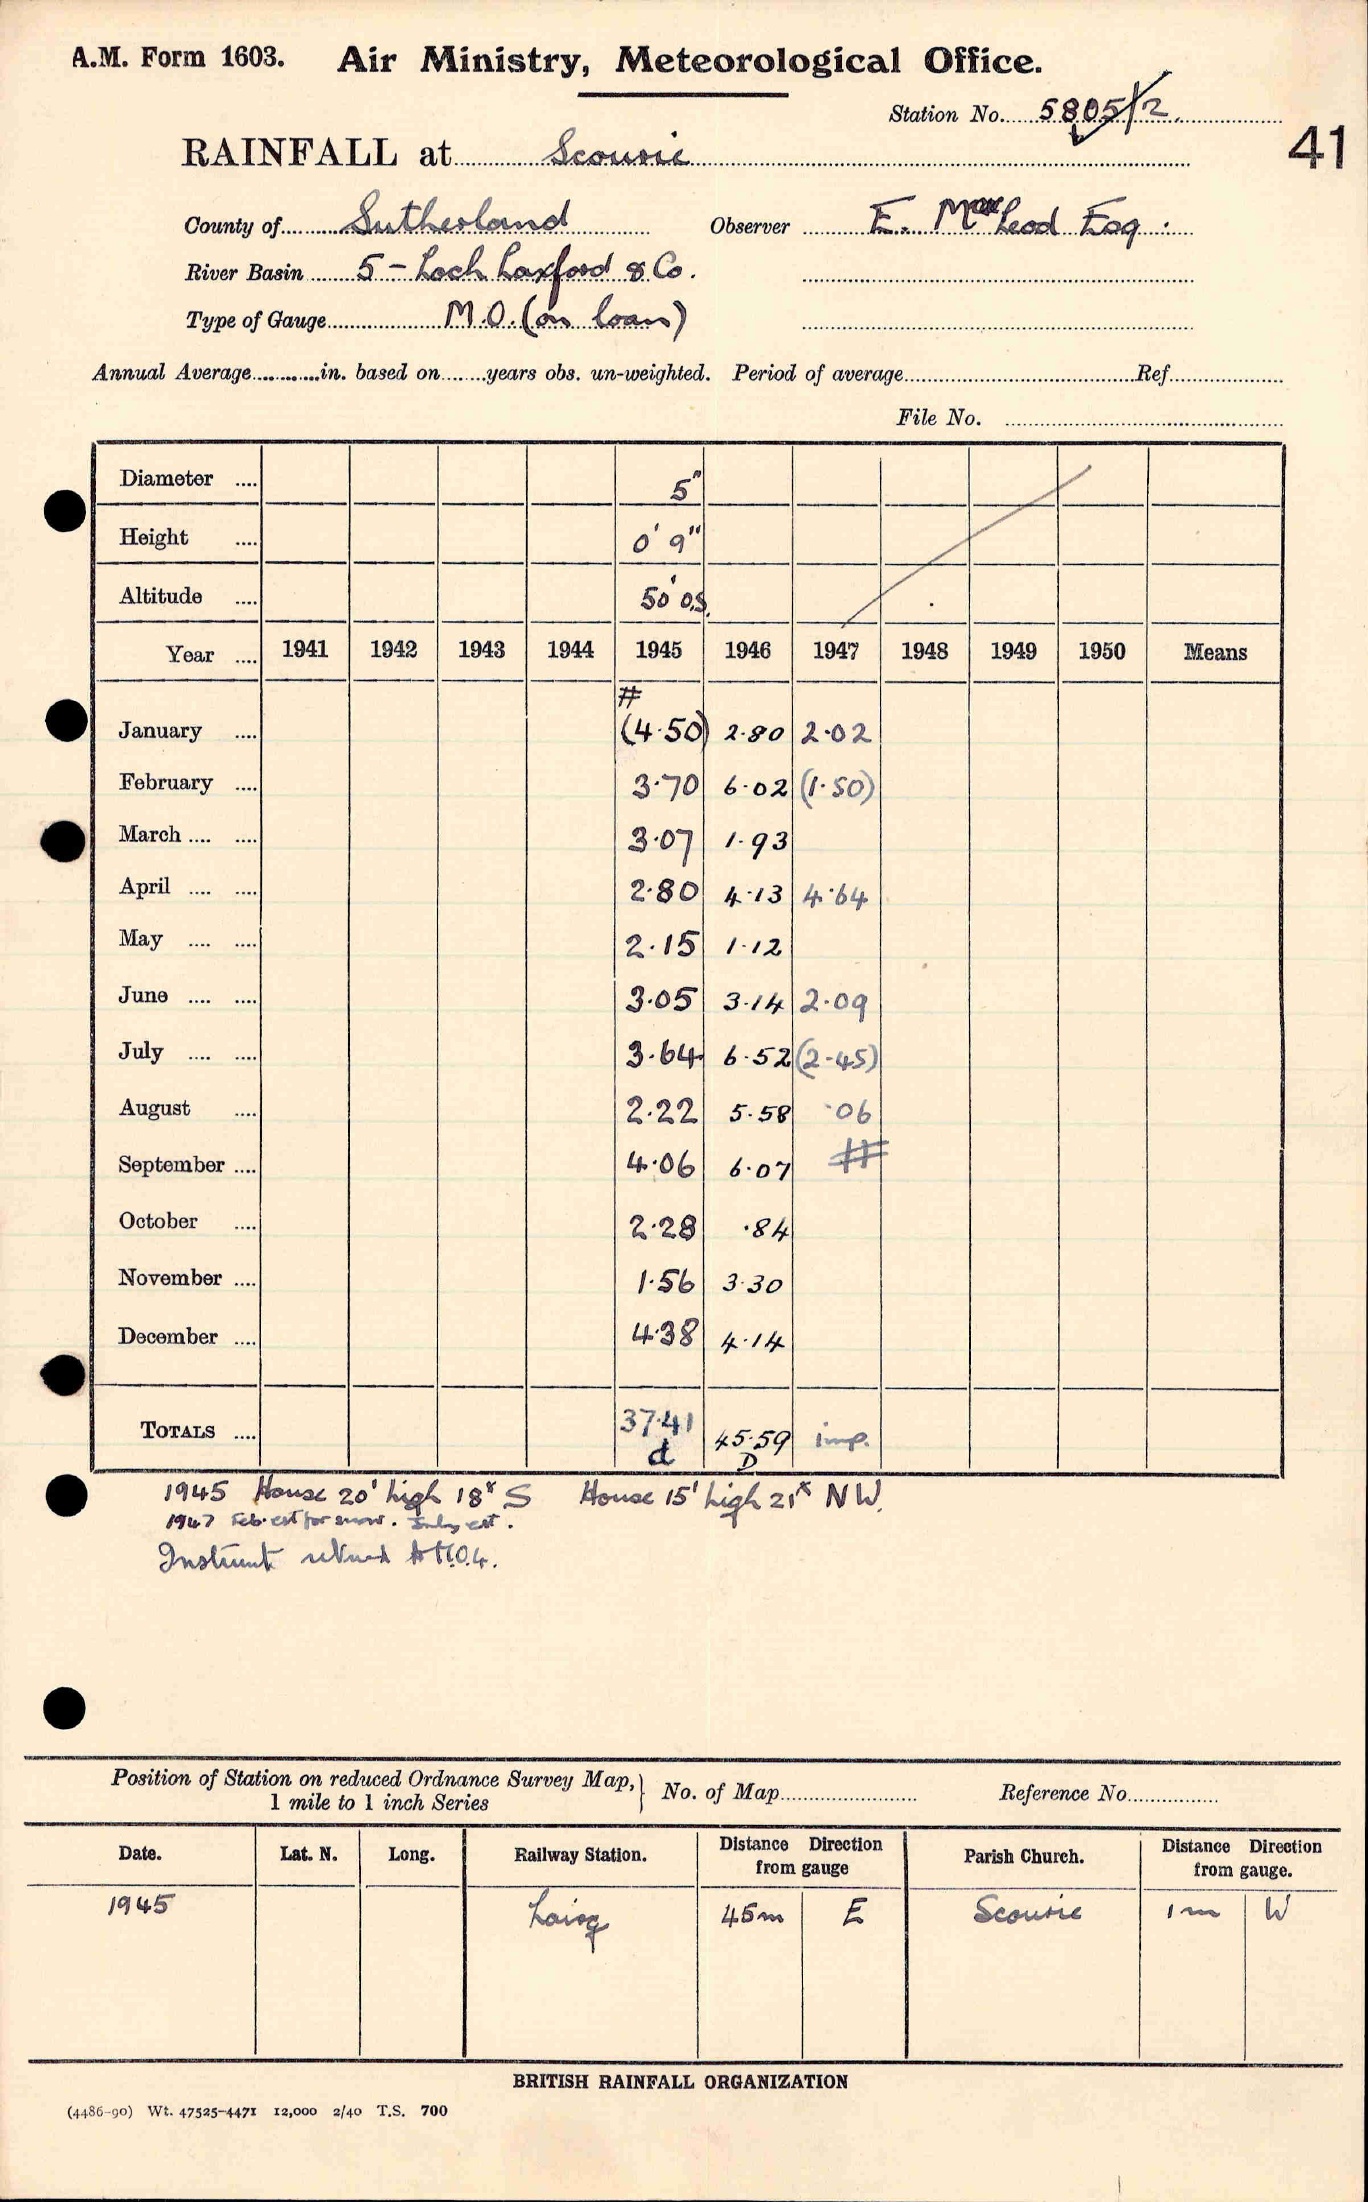 A.M. Form 1603. Air Ministry, Meteorological Office.
Station No. 5805/2.
41
RAINFALL at Scourie
County of Sutherland Observer E. MacLeod Esq.
River Basin 5 - Loch Laxford & Co.
Type of Gauge M.O. (on loan)
Annual Average in. based on years obs. un-weighted. Period of average Ref.
File No.
Diameter 5"
Height 0' 9"
Altitude 50' O.S.
Year 1941 1942 1943 1944 1945 1946 1947 1948 1949 1950 Means
#
January (4.50) 2.80 2.02
February 3.70 6.02 (1.50)
March 3.07 1.93
April 2.80 4.13 4.64
May 2.15 1.12
June 3.05 3.14 2.09
July 3.64 6.52 (2.45)
August 2.22 5.58 .06
September 4.06 6.07 #
October 2.28 .84
November 1.56 3.30
December 4.38 4.14
TOTALS 37.41 45.59 imp.
d D
1945 House 20' high 18x S House 15' high 21x NW.
1947 Feb. est for snow. July est.
Instrument retned to M.O.4.
Position of Station on reduced Ordnance Survey Map, } No. of Map Reference No.
1 mile to 1 inch Series
Date. Lat. N. Long. Railway Station. Distance Direction from gauge Parish Church. Distance Direction from gauge.
1945 Lairg 45m E Scourie 1m W
BRITISH RAINFALL ORGANIZATION
(4486-90) Wt. 47525-4471 12,000 2/40 T.S. 700